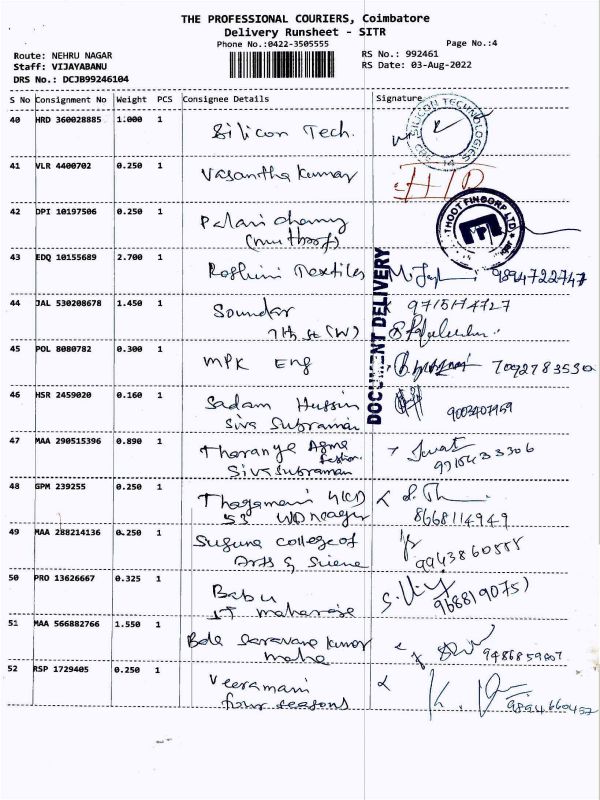 THE PROFESSIONAL COURIERS, Coimbatore
Delivery Runsheet - SITR
Phone No.:0422-3505555
Page No.:4
Route: NEHRU NAGAR
RS No.: 992461
Staff: VIJAYABANU
RS Date: 03-Aug-2022
DRS No.: DCJB99246104
S No Consignment No Weight PCS Consignee Details Signature
40 HRD 360028885 1.000 1 Silicon Tech.
SILICON TECHNOLOGIES
41 VLR 4400702 0.250 1 Vasantha Kumar
42 DPI 10197506 0.250 1 Palani
THOOT FINCORP LTD
43 EDQ 10155689 2.700 1 Roshini Textiles 9894722747
DOCUMENT DELIVERY
44 JAL 530208678 1.450 1 Soundar
7th st (W)
45 POL 8080782 0.300 1 MPK Eng 7092783530
46 HSR 2459020 0.160 1 Sadam Hussin
Siva Subraman
47 MAA 290515396 0.890 1 Tharanya
Siva Subraman 9715433306
48 GPM 239255 0.250 1
53 8668114949
49 MAA 288214136 0.250 1 Suguna College of
Arts & Sciene
50 PRO 13626667 0.325 1 Babu
maharaja
51 MAA 566882766 1.550 1 Bala Saravana Kumar
maha 9486859807
52 RSP 1729405 0.250 1 Veeramani
four seasons